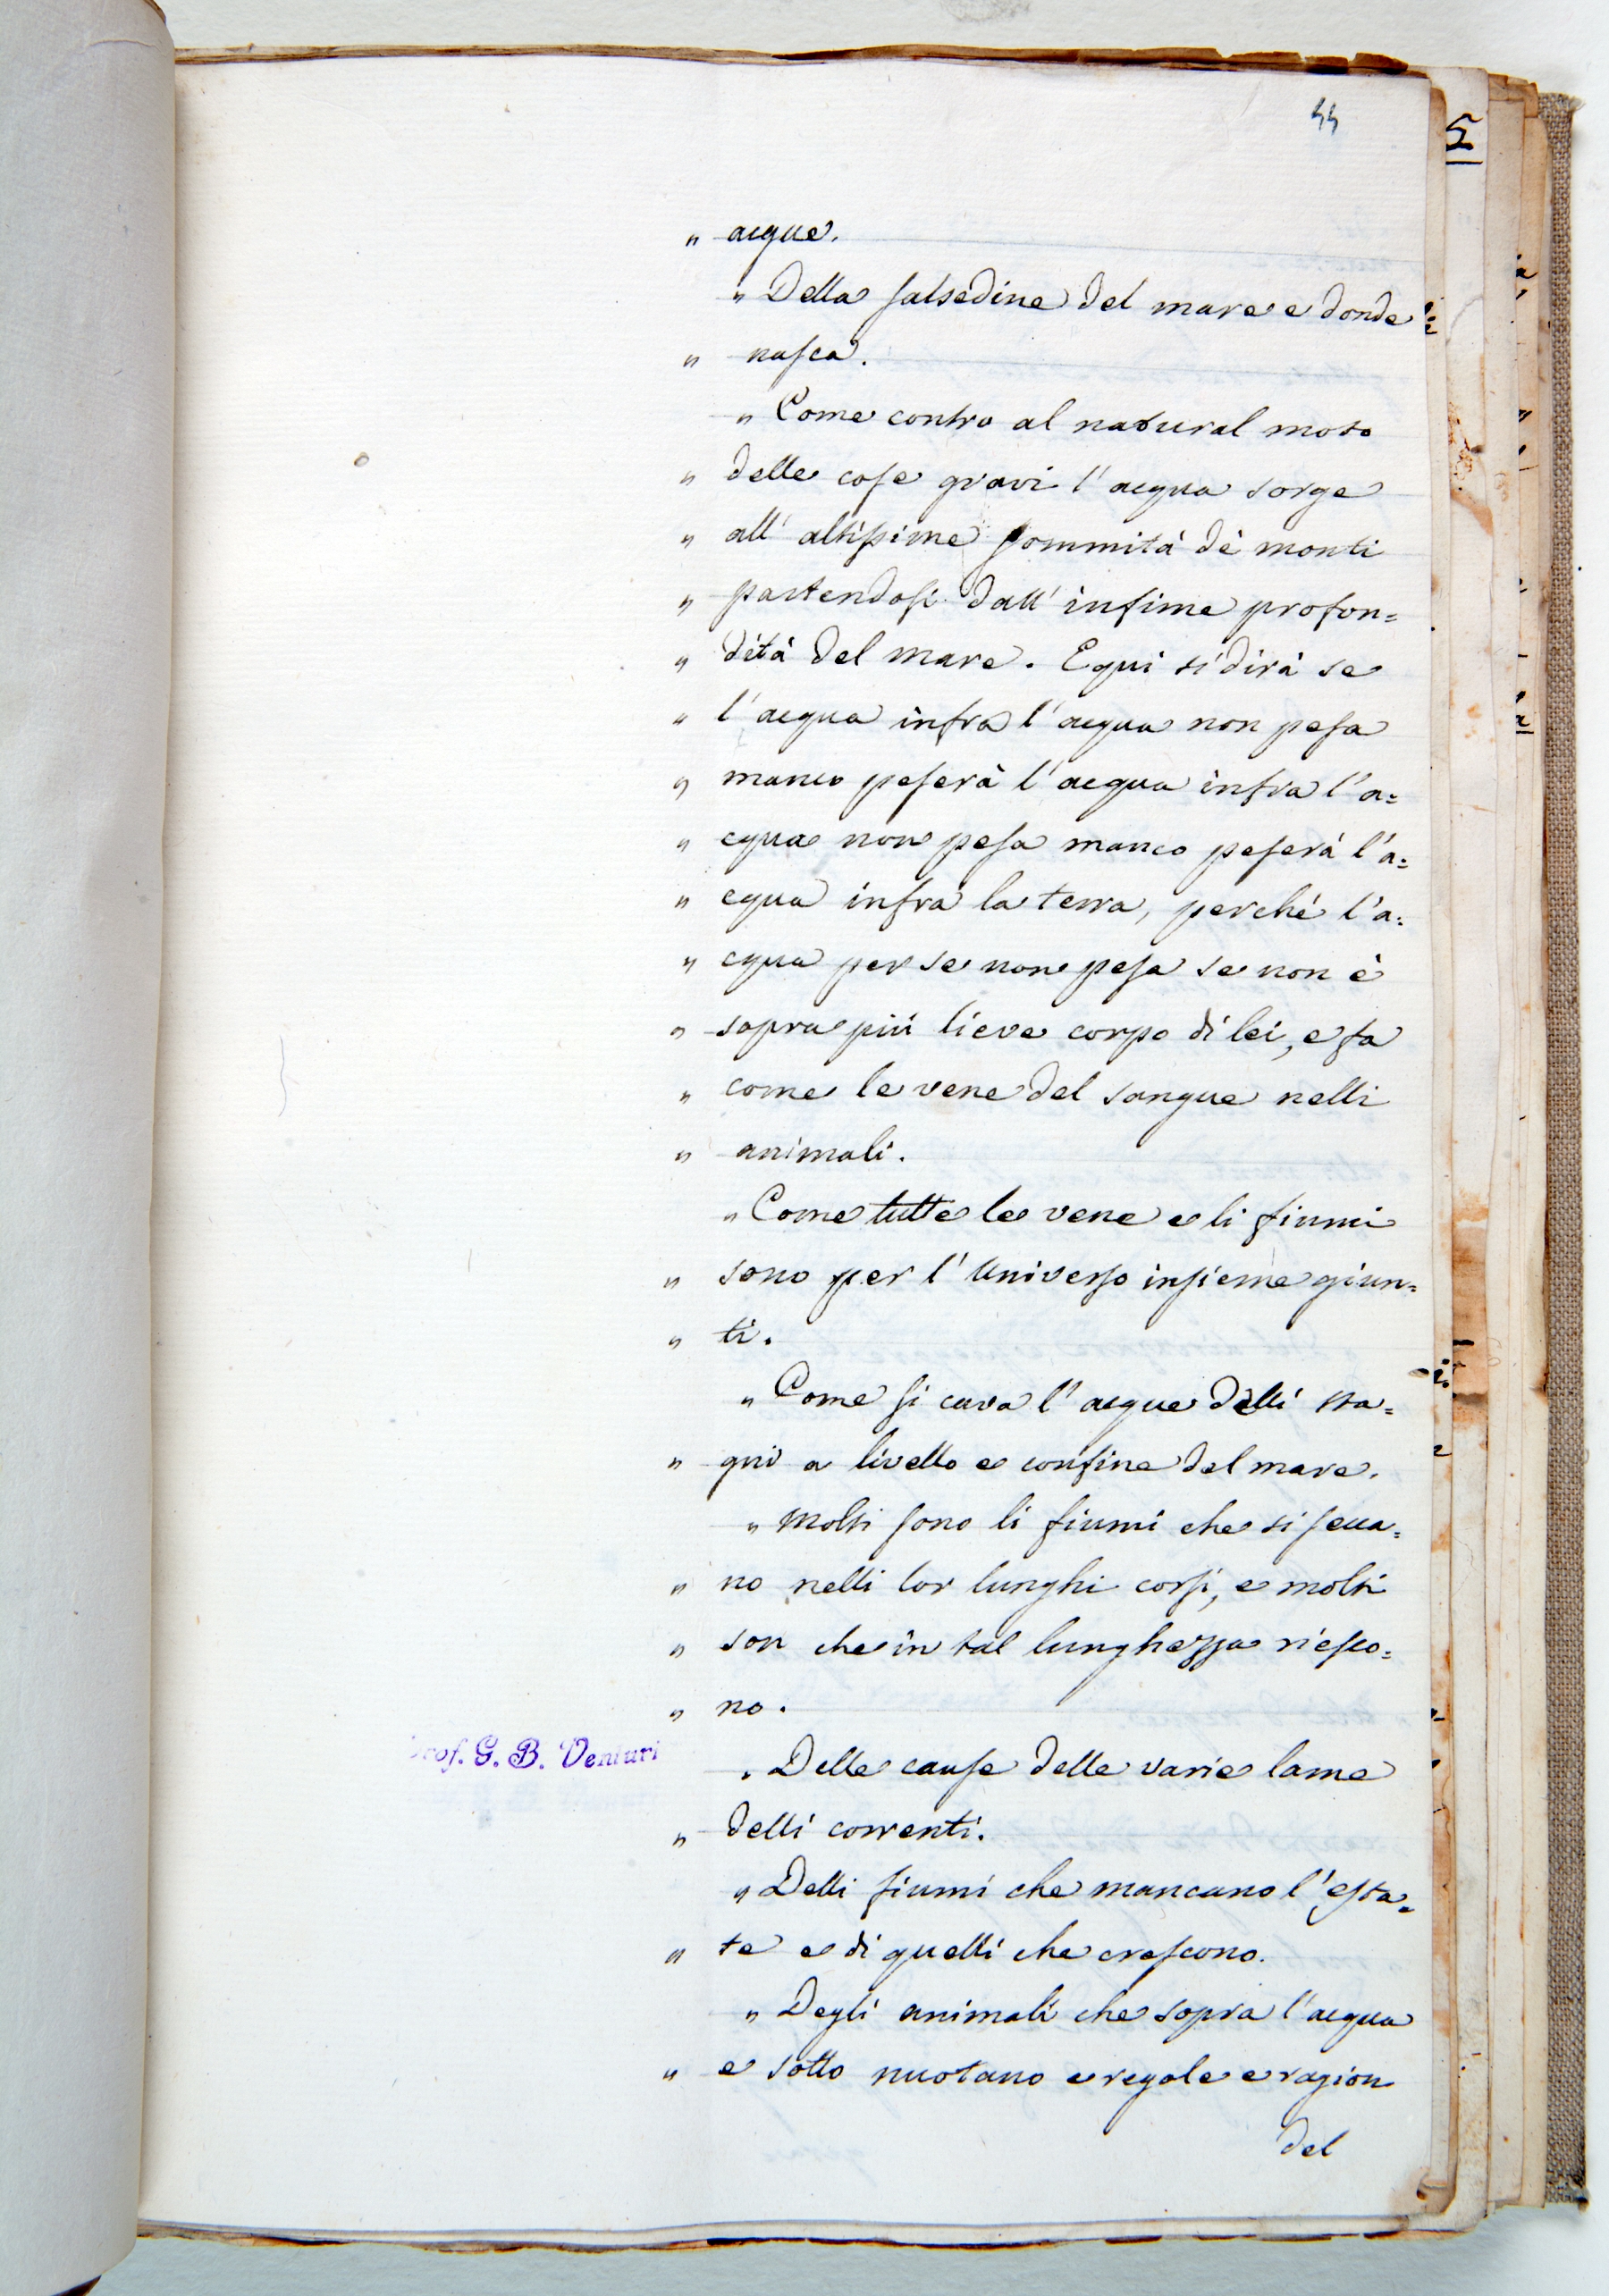 44
" acque.
" Della salsedine del mare e donde
" nasca.
" Come contro al natural moto
" delle cose gravi l'acqua sorge
" all'altissime sommità dè monti
" partendosi dall'infime profon=
" dità del mare. E qui si dirà se
" l'acqua infra l'acqua non pesa
" manco peserà l'acqua infra l'a=
" cqua non pesa manco peserà l'a=
" cqua infra la terra, perché l'a=
" cqua per se non pesa se non è
" sopra più lieve corpo di lei, e fa
" come le vene del sangue nelli
" animali.
" Come tutte le vene e li fiumi
" sono per l'Universo insieme giun=
" ti.
" Come si cava l'acque delli sta=
" gni a livello e confine del mare.
" Molti sono li fiumi che si secca=
" no nelli lor lunghi corsi, e molti
" son che in tal lunghezza riesco=
" no.
" Delle cause delle varie lame
" delli correnti.
" Delli fiumi che mancano l'esta=
" te e di quelli che crescono.
" Degli animali che sopra l'acqua
" e sotto nuotano e regole e ragion
del
Prof. G. B. Venturi